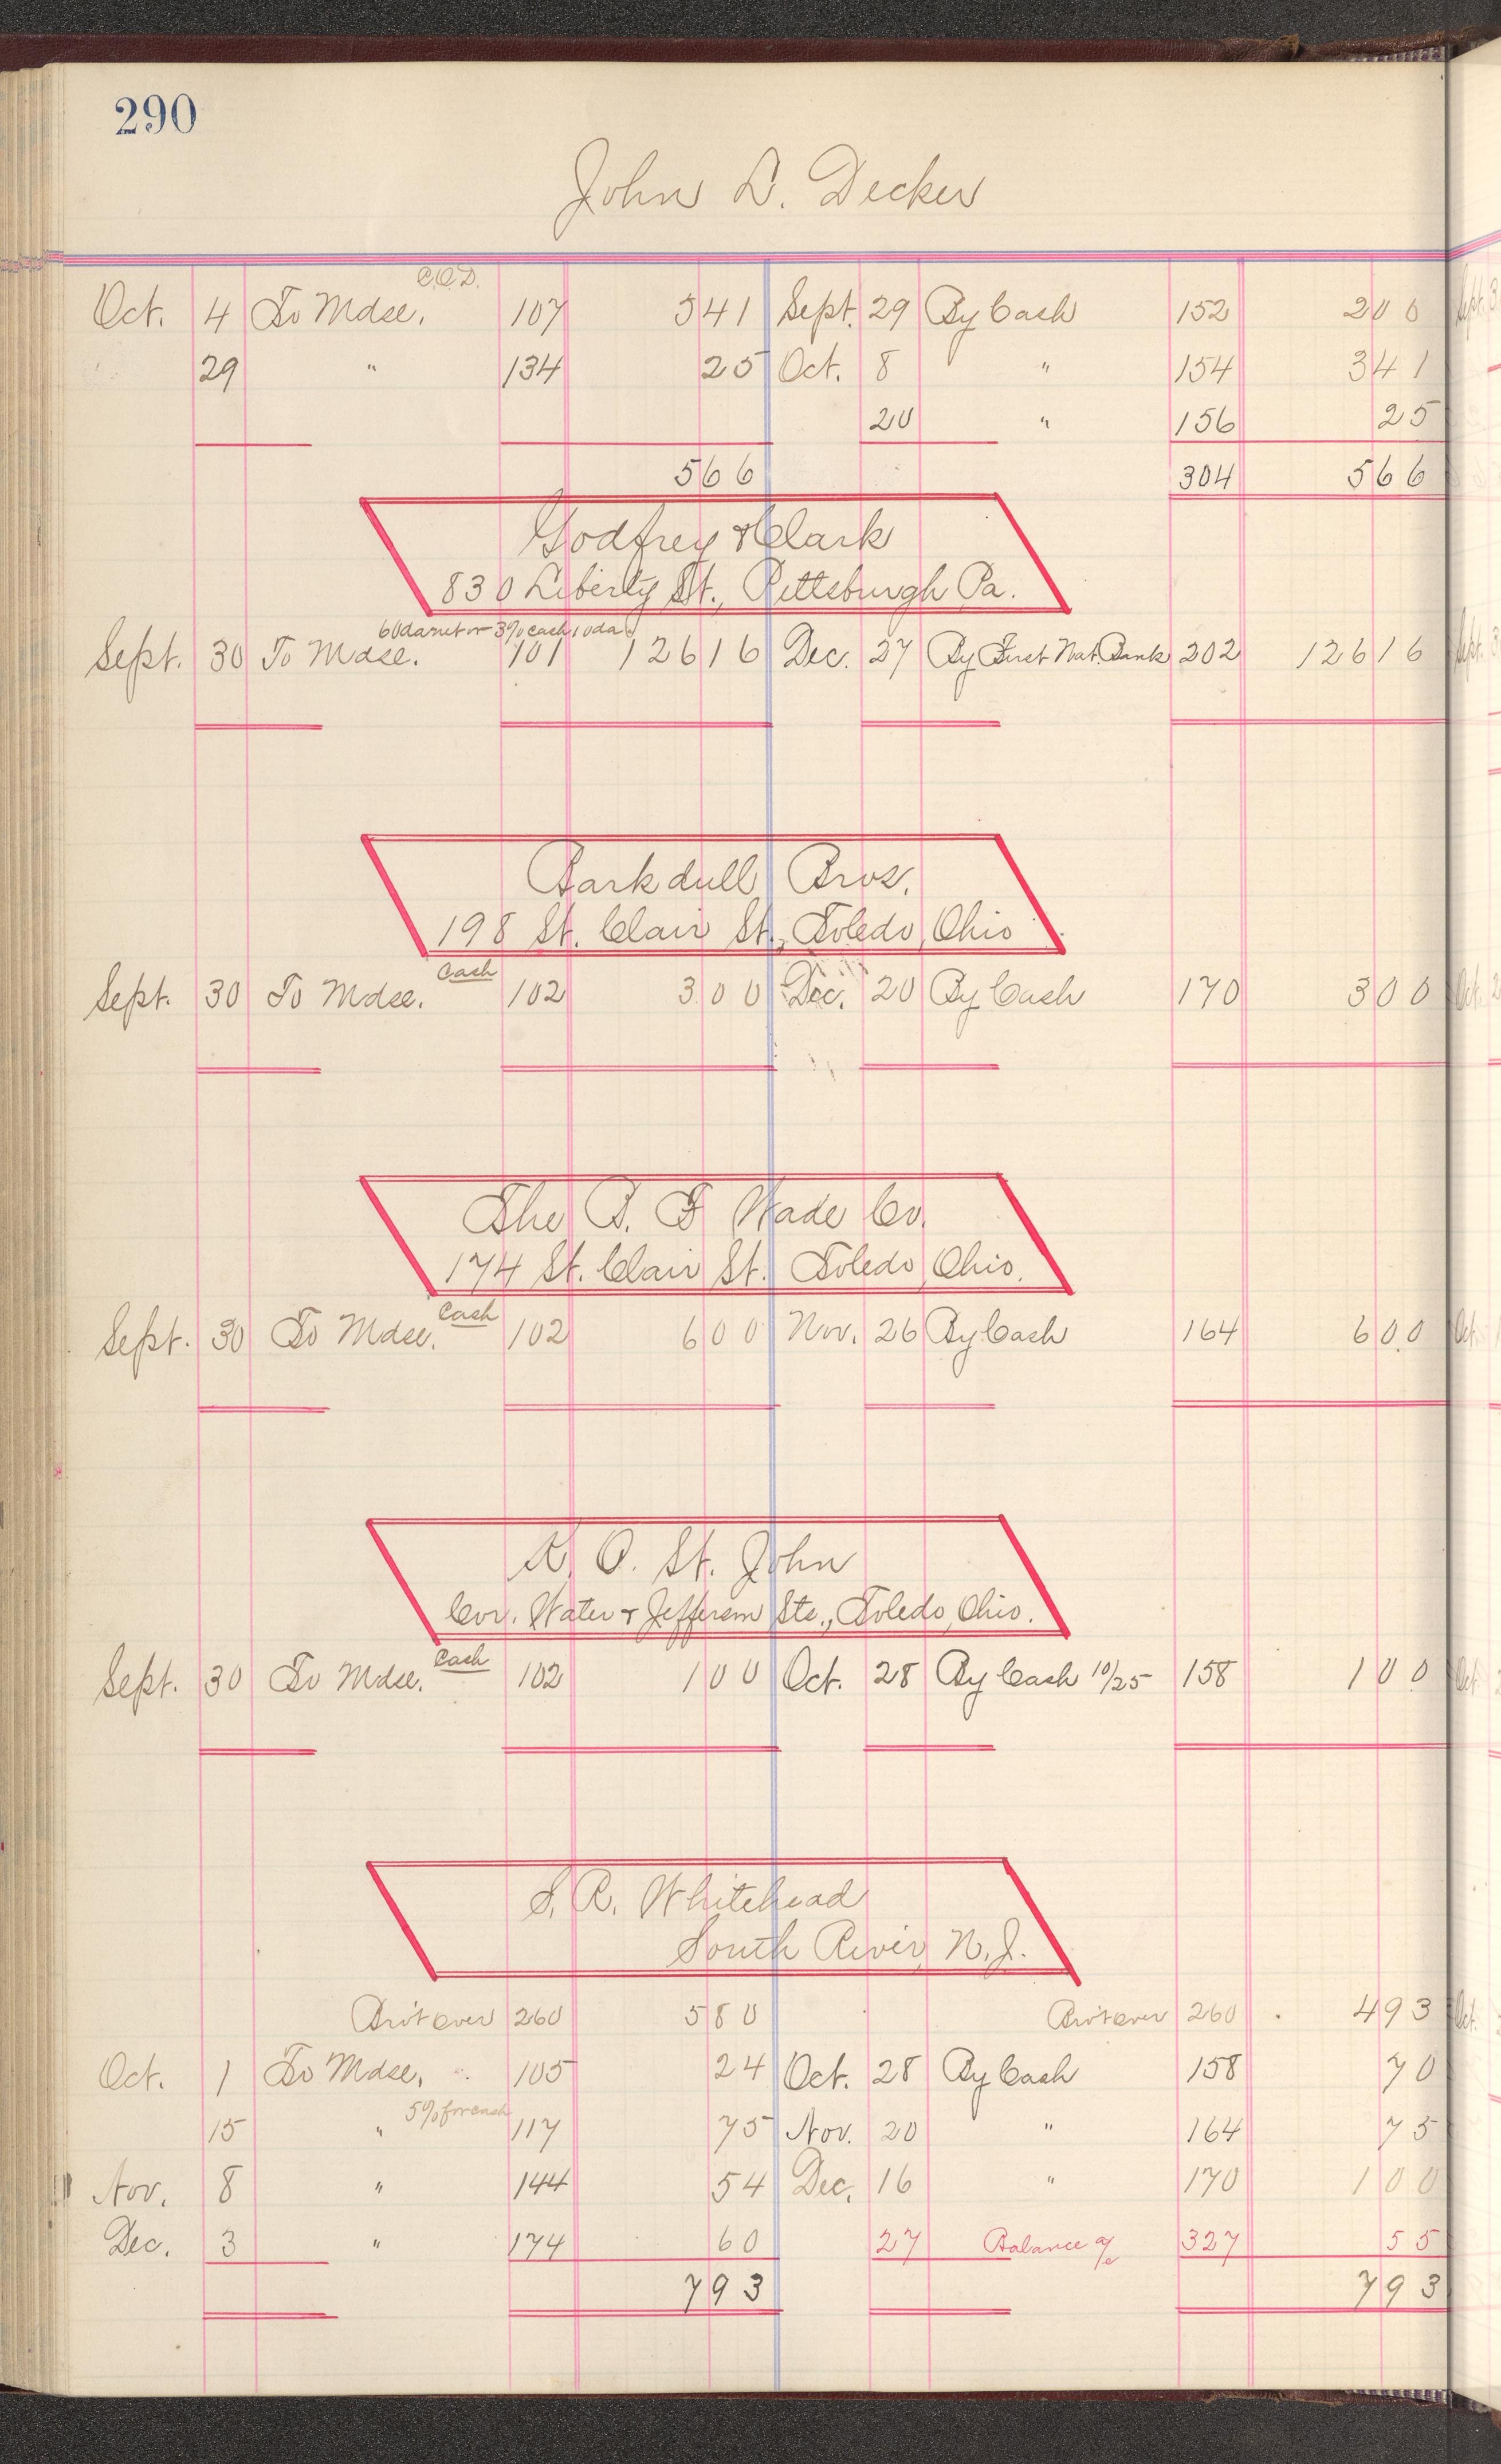 290
John D. Decker
C.O.D.
Oct. 4 To Mdse. 107 541 Sept. 29 By Cash 152 200
29 " 134 25 Oct. 8 " 154 341
20 " 156 25
566 304 566
Godfrey & Clark
830 Liberty St., Pittsburgh Pa.
60 da net or 3% cash 10 da.
Sept. 30 To Mdse. 101 126 16 Dec. 27 By First Nat. Bank 202 126 16
Barkdull Bros.
198 St. Clair St., Toledo, Ohio
Cash
Sept. 30 To Mdse. 102 300 Dec. 20 By Cash 170 300
The B. F Wade Co.
174 St. Clair St. Toledo, Ohio.
Cash
Sept. 30 To Mdse. 102 600 Nov. 26 By Cash 164 600
K. O. St. John
Cor. Water & Jefferson Sts., Toledo, Ohio.
Cash
Sept. 30 To Mdse. 102 100 Oct. 28 By Cash 10/25 158 100
S. R. Whitehead
South River, N.J.
Br't over 260 580 Br't over 260 493
Oct. 1 To Mdse. 105 24 Oct. 28 By Cash 158 70
5% for cash
15 " 117 75 Nov. 20 " 164 75
Nov. 8 " 144 54 Dec. 16 " 170 100
Dec. 3 " 174 60 27 Balance a/c 327 55
793 793